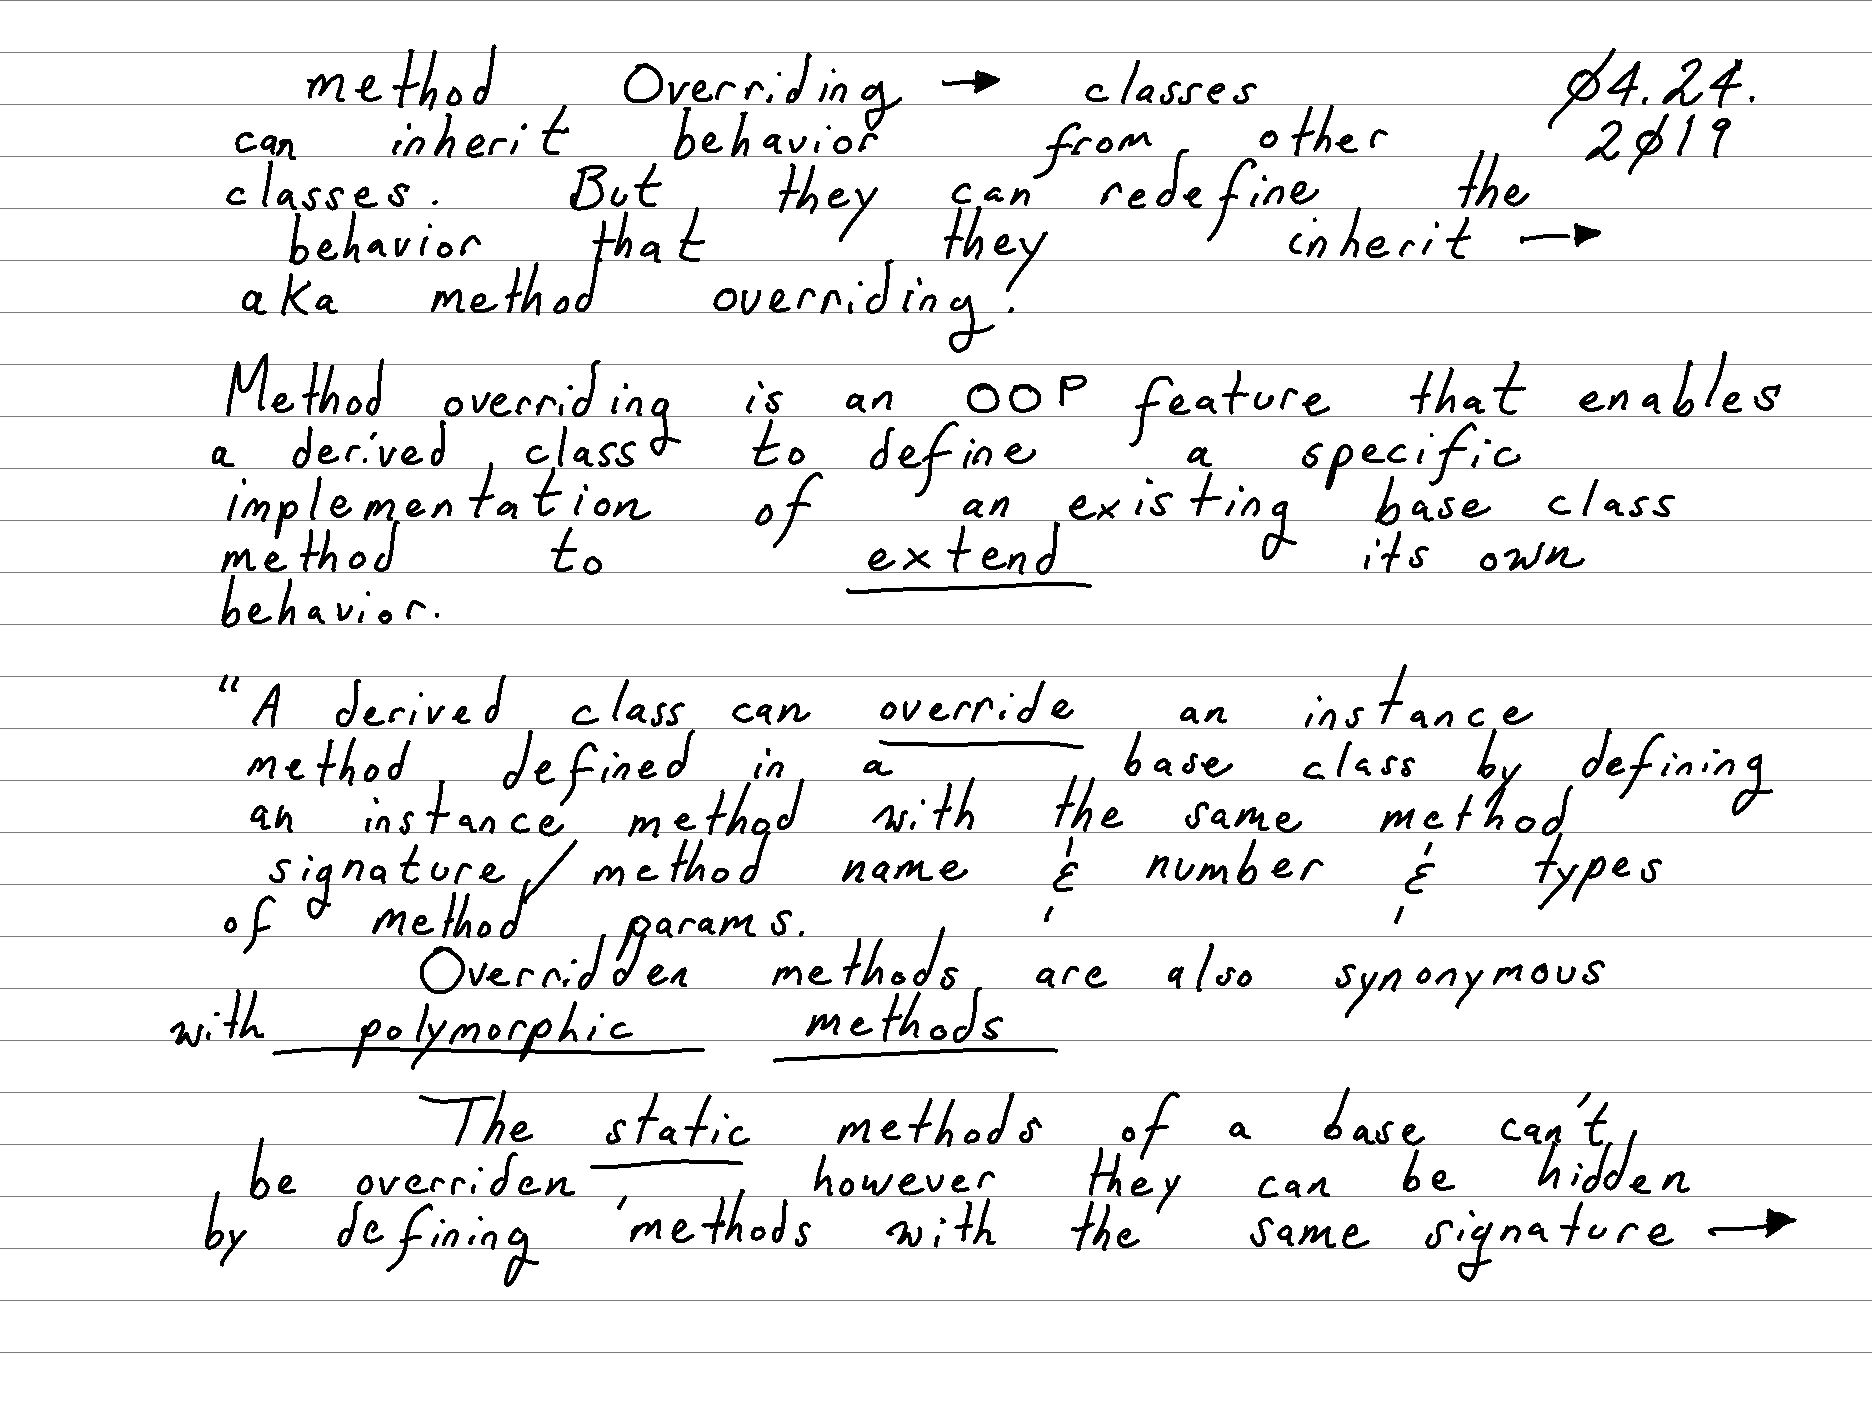 method Overriding → classes 04.24.
can inherit behavior from other 2019
classes. But they can redefine the
behavior that they inherit →
aka method overriding!
Method overriding is an OOP feature that enables
a derived class to define a specific
implementation of an existing base class
method to extend its own
behavior.
"A derived class can override an instance
method defined in a base class by defining
an instance method with the same method
signature/method name & number & types
of method params.
Overridden methods are also synonymous
with polymorphic methods
The static methods of a base can't
be overriden, however they can be hidden
by defining methods with the same signature →